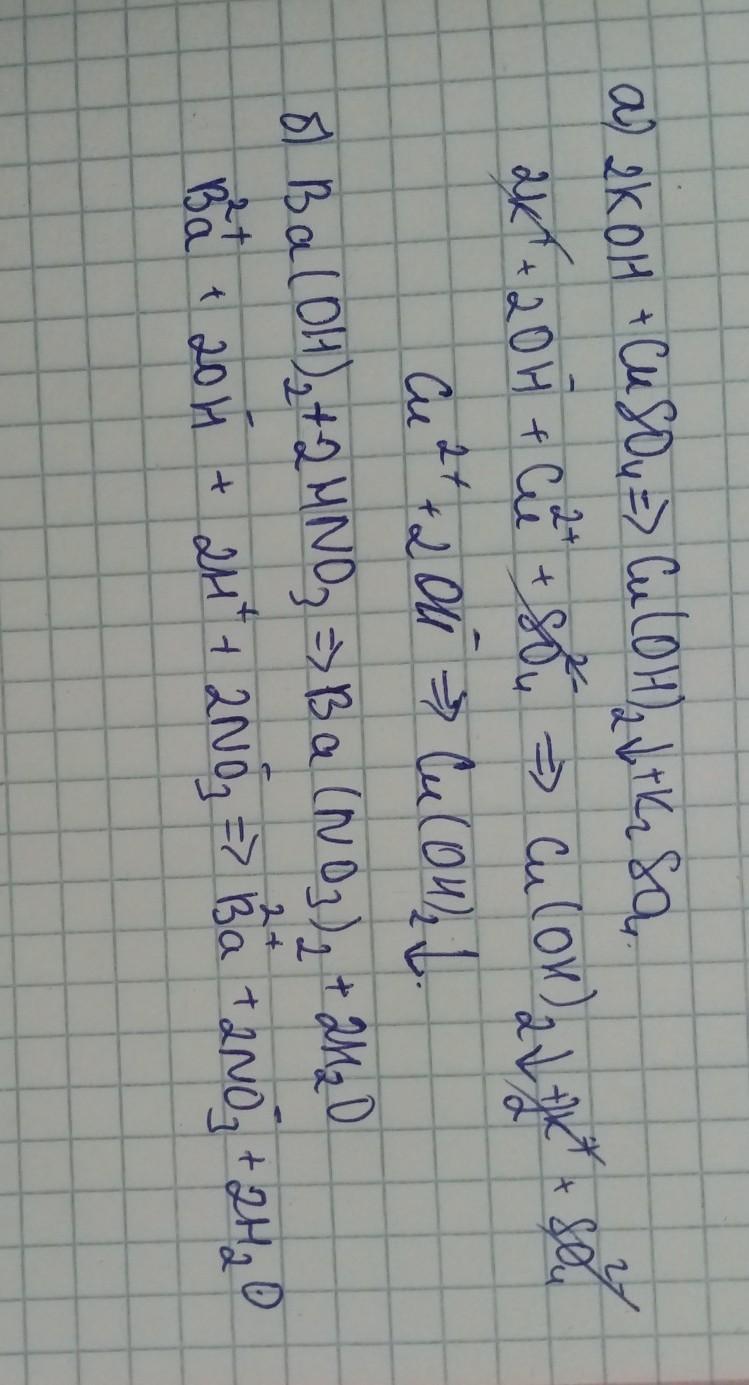 а) 2KOH + CuSO₄ => Cu(OH)₂↓ + K₂SO₄.
2K⁺ + 2OH⁻ + Cu²⁺ + SO₄²⁻ => Cu(OH)₂↓ + 2K⁺ + SO₄²⁻
Cu²⁺ + 2OH⁻ => Cu(OH)₂↓.
б) Ba(OH)₂ + 2HNO₃ => Ba(NO₃)₂ + 2H₂O
Ba²⁺ + 2OH⁻ + 2H⁺ + 2NO₃⁻ => Ba²⁺ + 2NO₃⁻ + 2H₂O